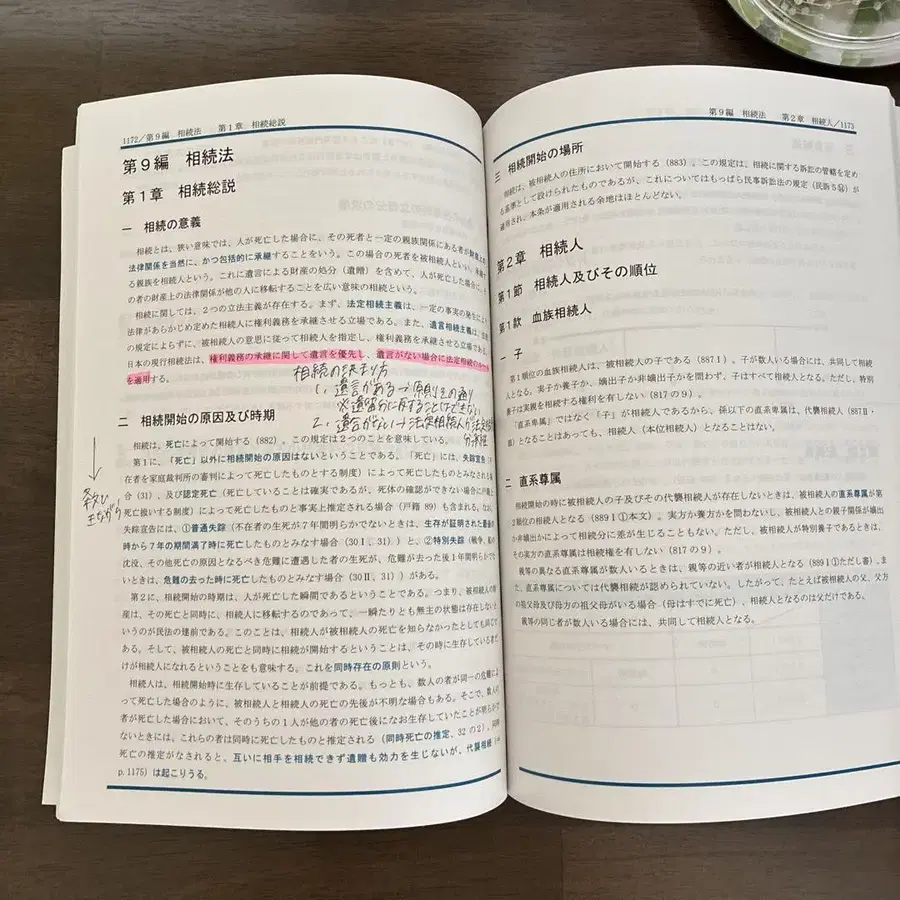 1172/第9編 相続法 第1章 相続総説
第9編 相続法
第1章 相続総説
一 相続の意義
相続とは、狭い意味では、人が死亡した場合に、その死者と一定の親族関係にある者が財産上の
法律関係を当然に、かつ包括的に承継することをいう。この場合の死者を被相続人といい、承継す
る親族を相続人という。これに遺言による財産の処分（遺贈）を含めて、人が死亡した場合に、そ
の者の財産上の法律関係が他の人に移転することを広い意味の相続という。
相続に関しては、2つの立法主義が存在する。まず、法定相続主義は、一定の事実の発生により
法律があらかじめ定めた相続人に権利義務を承継させる立場である。また、遺言相続主義は、法律
の規定によらずに、被相続人の意思に従って相続人を指定し、権利義務を承継させる立場である。
日本の現行相続法は、権利義務の承継に関して遺言を優先し、遺言がない場合に法定相続の
を適用する。
相続の決まり方
1. 遺言がある→原則その通り
※遺留分に反することはできない
2. 遺言がない→法定相続人が法定相続
二 相続開始の原因及び時期
相続は、死亡によって開始する（882）。この規定は2つのことを意味している。
第1に、「死亡」以外に相続開始の原因はないということである。「死亡」には、失踪宣告（不
在者を家庭裁判所の審判によって死亡したものとする制度）によって死亡したものとみなされる場
合（31）、及び認定死亡（死亡していることは確実であるが、死体の確認ができない場合に戸籍上
死亡扱いする制度）によって死亡したものと事実上推定される場合（戸籍89）も含まれる。なお、
失踪宣告には、①普通失踪（不在者の生死が7年間明らかでないときは、生存が証明された最後の
時から7年の期間満了時に死亡したものとみなす場合（30Ⅰ、31））と、②特別失踪（戦争、船の
沈没、その他死亡の原因となるべき危難に遭遇した者の生死が、危難が去った後1年間明らかでな
いときは、危難の去った時に死亡したものとみなす場合（30Ⅱ、31））がある。
第2に、相続開始の時期は、人が死亡した瞬間であるということである。つまり、被相続人の財
産は、その死亡と同時に、相続人に移転するのであって、一瞬たりとも無主の状態は存在しないと
いうのが民法の建前である。このことは、相続人が被相続人の死亡を知らなかったとしても同じで
ある。そして、被相続人の死亡と同時に相続が開始するということは、その時に生存している者だ
けが相続人になれるということをも意味する。これを同時存在の原則という。
相続人は、相続開始時に生存していることが前提である。もっとも、数人の者が同一の危難によ
って死亡した場合のように、被相続人と相続人の死亡の先後が不明な場合もある。そこで、数人の
者が死亡した場合において、そのうちの1人が他の者の死亡後になお生存していたことが明らかで
ないときには、これらの者は同時に死亡したものと推定される（同時死亡の推定、32の2）。同時
死亡の推定がなされると、互いに相手を相続できず遺贈も効力を生じないが、代襲相続（
p.1175）は起こりうる。
第9編 相続法 第2章 相続人/1173
三 相続開始の場所
相続は、被相続人の住所において開始する（883）。この規定は、相続に関する訴訟の管轄を定め
る基準として設けられたものであるが、これについてはもっぱら民事訴訟法の規定（民訴5⑭）が
適用され、本条が適用される余地はほとんどない。
第2章 相続人
第1節 相続人及びその順位
第1款 血族相続人
一 子
第1順位の血族相続人は、被相続人の子である（887Ⅰ）。子が数人いる場合には、共同して相続
人となる。実子か養子か、嫡出子か非嫡出子かを問わず、子はすべて相続人となる。ただし、特別
養子は実親を相続する権利を有しない（817の9）。
「直系卑属」ではなく「子」が相続人であるから、孫以下の直系卑属は、代襲相続人（887Ⅱ・
Ⅲ）となることはあっても、相続人（本位相続人）となることはない。
二 直系尊属
相続開始の時に被相続人の子及びその代襲相続人が存在しないときは、被相続人の直系尊属が第
2順位の相続人となる（889Ⅰ①本文）。実方か養方かを問わないし、被相続人との親子関係が嫡出
か非嫡出かによって相続分に差が生じることもない。ただし、被相続人が特別養子であるときは、
その実方の直系尊属は相続権を有しない（817の9）。
親等の異なる直系尊属が数人いるときは、親等の近い者が相続人となる（889Ⅰ①ただし書）。ま
た、直系尊属については代襲相続が認められていない。したがって、たとえば被相続人の父、父方
の祖父母及び母方の祖父母がいる場合（母はすでに死亡）、相続人となるのは父だけである。
親等の同じ者が数人いる場合には、共同して相続人となる。